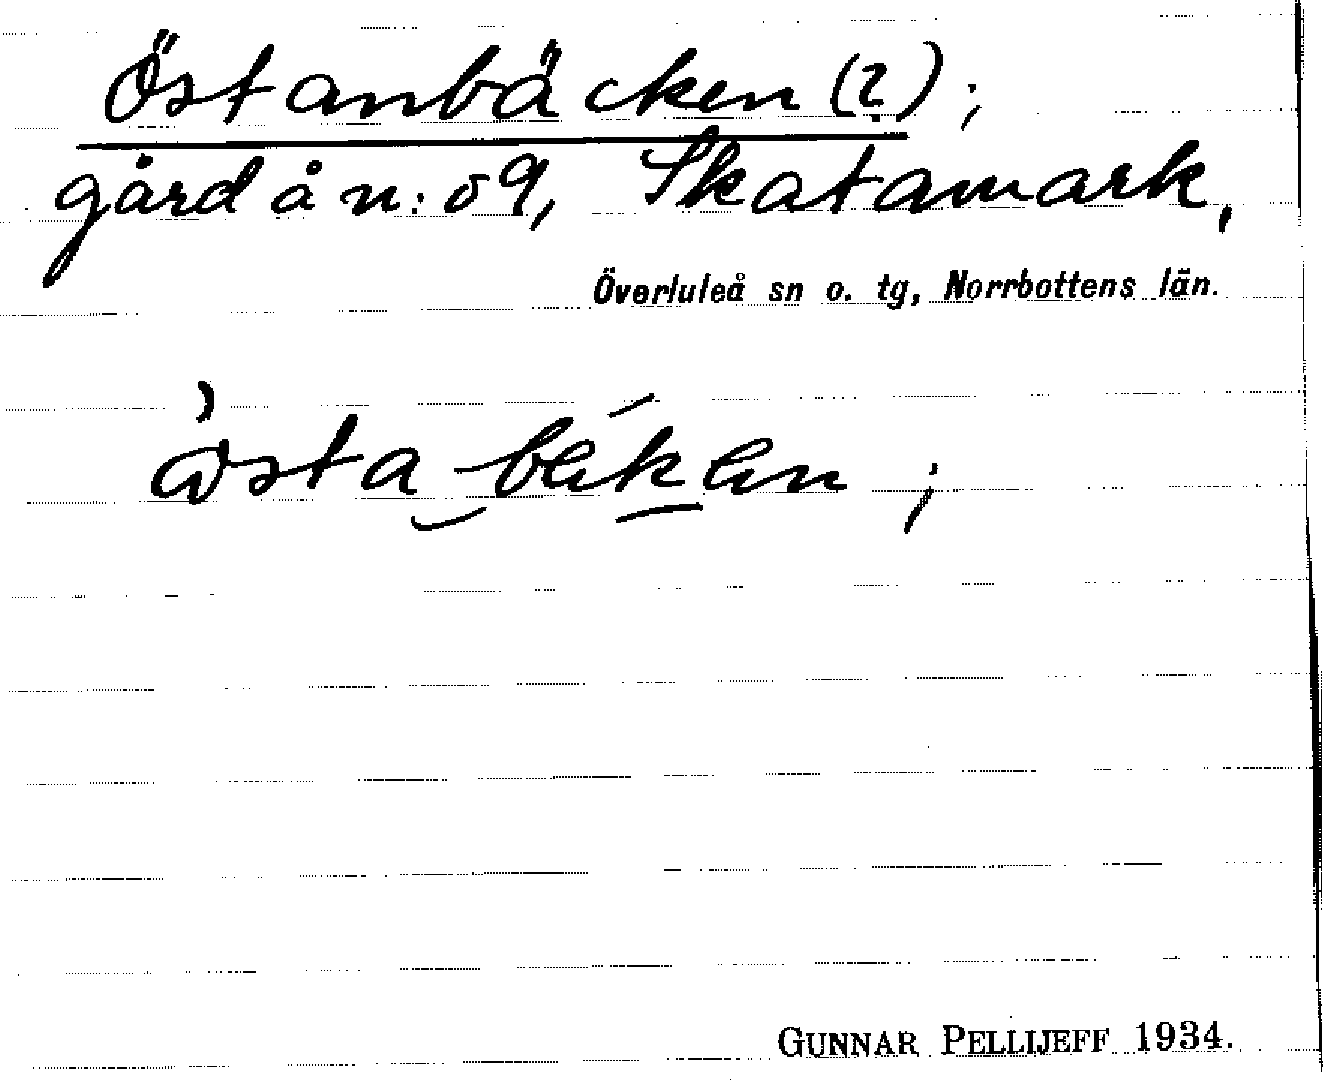 Östanbäcken (?);
gård å n:o 9, Skatamark,
Överluleå sn o. tg, Norrbottens län.
GUNNAR PELLIJEFF 1934.